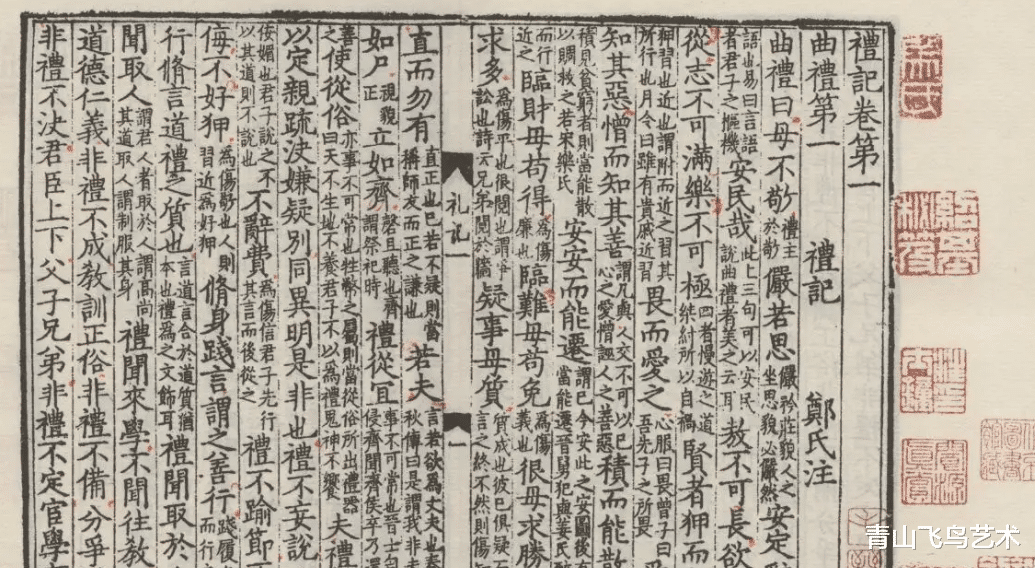 禮記卷第一
曲禮第一 禮記 鄭氏注
曲禮曰毋不敬禮主於敬儼若思儼矜莊貌人之坐思貌必儼然安定
語也易曰言語者君子之樞機安民哉此上三句可以安民說曲禮者美之云耳敖不可長欲
從志不可滿樂不可極四者慢遊之道桀紂所以自禍賢者狎而
狎習也近也謂附而近之習其所行也月令曰雖有貴戚近習畏而愛之心服曰畏曾子曰吾先子之所
知其惡憎而知其善謂凡與人交不可以已心之愛憎誣人之善惡積而能散
積見貧窮者則當能散以賙救之若宋樂氏安安而能遷謂已今安此之安圖後有當能遷晉舅犯與姜氏
而行近之臨財毋苟得為傷廉也臨難毋苟免為傷義也很毋求勝
求多為傷平也很鬩也謂爭訟也詩云兄弟鬩於牆疑事毋質質成也彼已俱疑而言之終不然則傷
礼記一 一
直而勿有直正也已若不疑則當稱師友而正之謙也若夫言若欲爲丈夫也春秋傳曰是謂我非
如尸視貌正立如齊磬且聽也齊謂祭祀時禮從宜事不可常也晉士侵齊聞齊侯卒乃還
善之使從俗亦事不可常也牲幣之屬則當從俗所出禮器曰天不生地不養君子不以為禮鬼神不饗夫禮
以定親疏決嫌疑別同異明是非也禮不妄說
佞媚也君子說之不以其道則不說也不辭費為傷信君子先行其言而後從之禮不踰節
侮不好狎為傷敬也人則習近為好狎脩身踐言謂之善行踐履而行
行脩言道禮之質也言道言合於道質猶本也禮為之文飾耳禮聞取於
聞取人謂君人者取於人謂高尚其道取人謂制服其身禮聞來學不聞往教
道德仁義非禮不成教訓正俗非禮不備分爭
非禮不決君臣上下父子兄弟非禮不定官學
青山飞鸟艺术